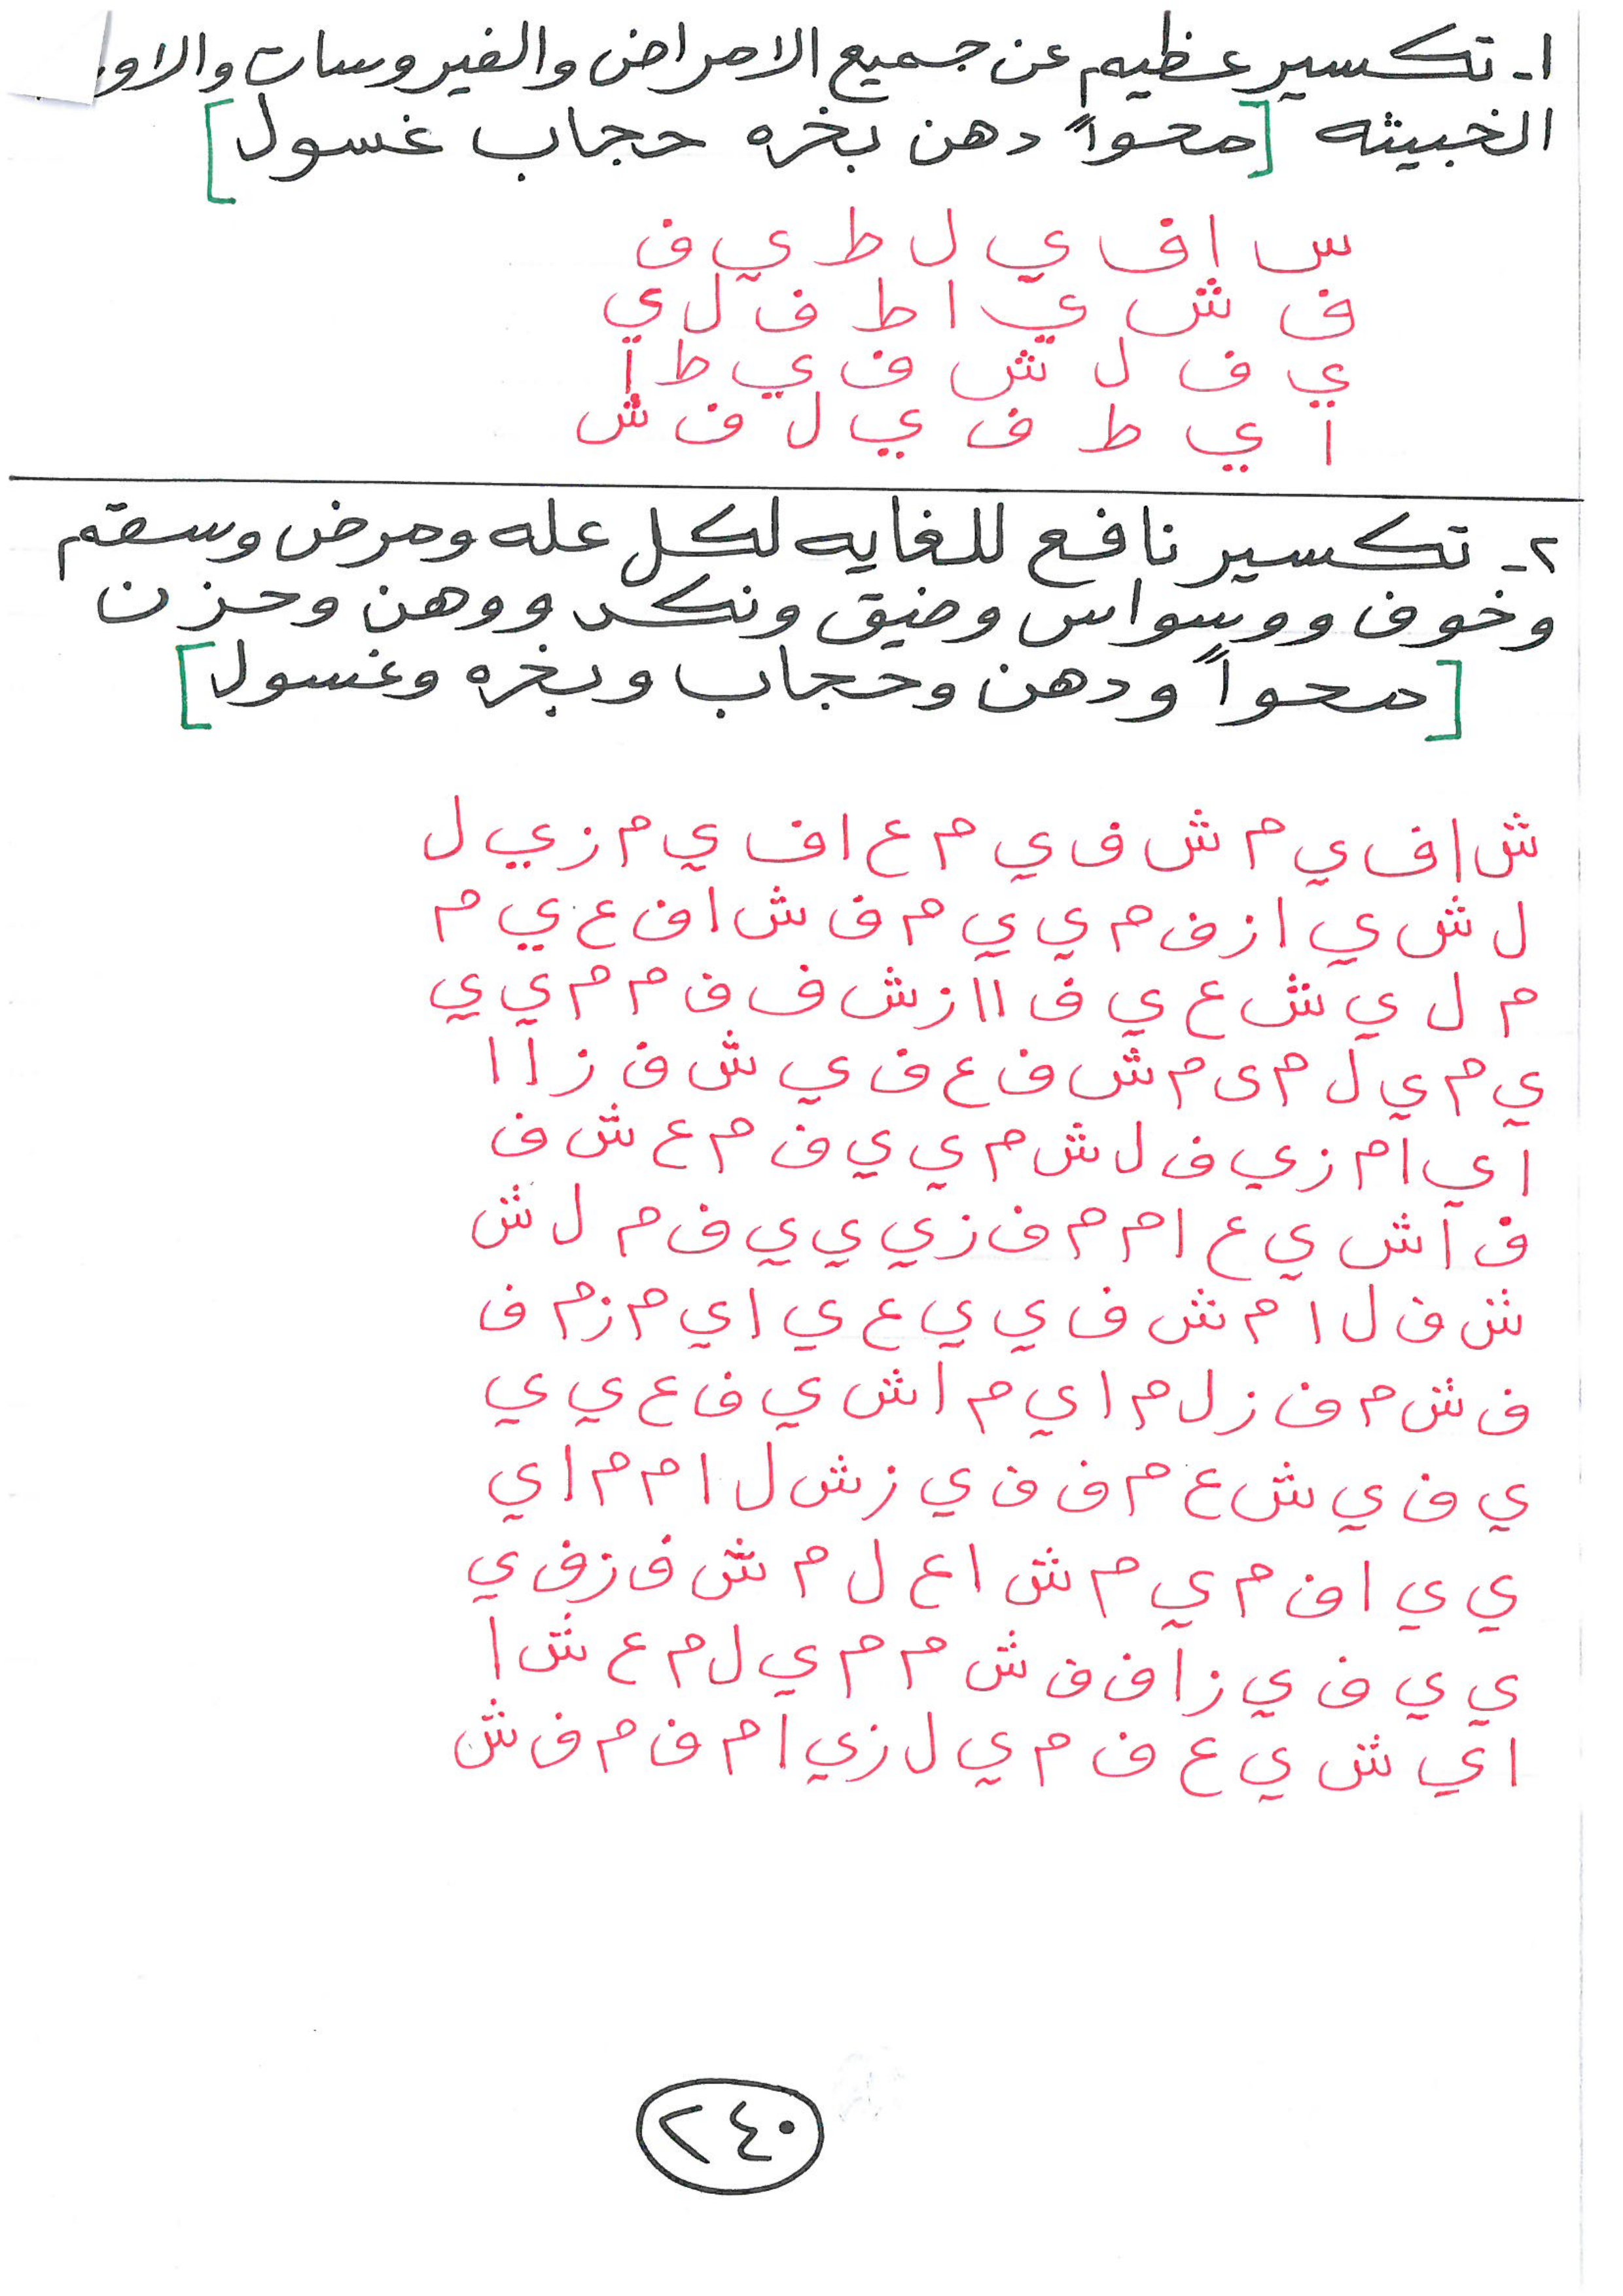 ١- تكسير عظيم عن جميع الامراض والفيروسات والاو
الخبيثه [محواً دهن بخره حجاب غسول]
س ا ف ي ل ط ي ف
ف ش ي ا ط ف ل ي
ي ف ل ش ف ي ط ا
ا ي ط ف ي ل ف ش
٢- تكسير نافع للغايه لكل عله ومرض وسقم
وخوف ووسواس وضيق ونكد ووهن وحزن
[محواً ودهن وحجاب وبخره وغسول]
ش ا ف ي م ش ف ي م ع ا ف ي م ز ي ل
ل ش ي ا ز ف م ي ي م ف ش ا ف ع ي م
م ل ي ش ع ي ف ا ا ز ش ف ف م م ي ي
ي م ي ل م ى م ش ف ع ف ي ش ف ز ا ا
ا ي ا م ز ي ف ل ش م ي ي ف م ع ش ف
ف ا ش ي ع ا م م ف ز ي ي ي ف م ل ش
ش ف ل ا م ش ف ي ي ع ي ا ي م ز م ف
ف ش م ف ز ل م ا ي م ا ش ي ف ع ي ي
ي ف ي ش ع م ف ف ي ز ش ل ا م م ا ي
ي ي ا ف م ي م ش ا ع ل م ش ف ز ف ي
ي ي ف ي ز ا ف ف ش م م ي ل م ع ش ا
ا ي ش ي ع ف م ي ل ز ي ا م ف م ف ش
٢٤٠